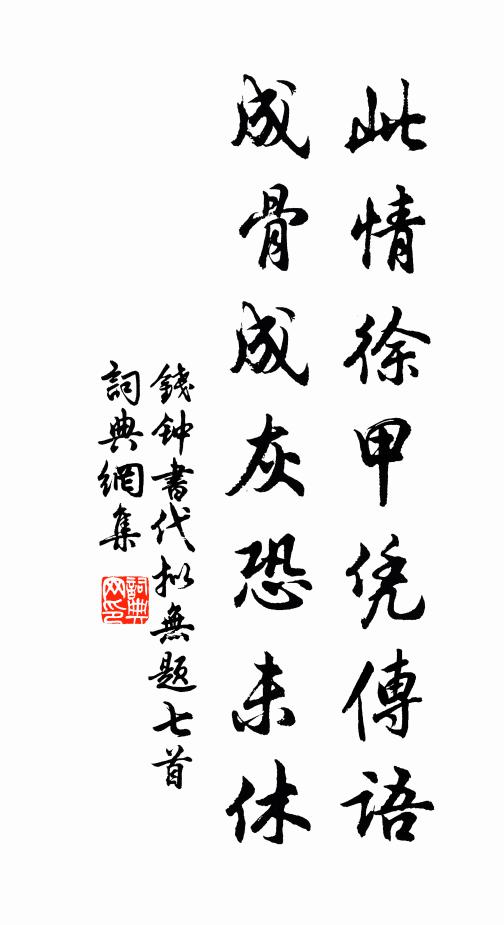 此情徐甲凭傳語
成骨成灰恐未休
錢钟書代拟無题七首
詞典網集
詞典
网印